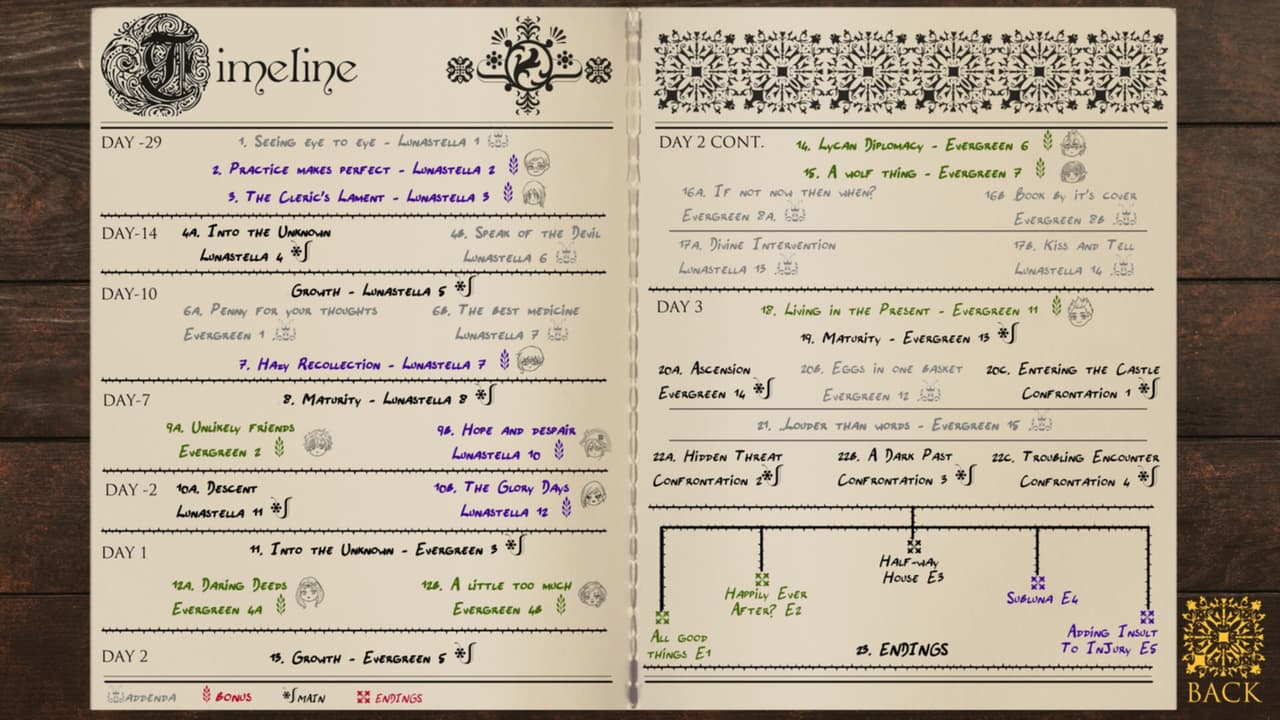 Timeline
DAY -29
1. Seeing eye to eye - Lunastella 1
2. Practice makes perfect - Lunastella 2
3. The Cleric's Lament - Lunastella 3
DAY-14
4A. Into the Unknown
Lunastella 4
4B. Speak of the Devil
Lunastella 6
DAY-10
Growth - Lunastella 5
6A. Penny for your thoughts
Evergreen 1
6B. The best medicine
Lunastella 7
7. Hazy Recollection - Lunastella 7
DAY-7
8. Maturity - Lunastella 8
9A. Unlikely friends
Evergreen 2
9B. Hope and despair
Lunastella 10
DAY -2
10A. Descent
Lunastella 11
10B. The Glory Days
Lunastella 12
DAY 1
11. Into the Unknown - Evergreen 3
12A. Daring Deeds
Evergreen 4A
12B. A little too much
Evergreen 4B
DAY 2
13. Growth - Evergreen 5
Addenda
Bonus
Main
Endings
DAY 2 CONT.
14. Lycan Diplomacy - Evergreen 6
15. A wolf thing - Evergreen 7
16A. If not now then when?
Evergreen 8A
16B Book by it's cover
Evergreen 8B
17A. Divine Intervention
Lunastella 13
17B. Kiss and Tell
Lunastella 14
DAY 3
18. Living in the Present - Evergreen 11
19. Maturity - Evergreen 13
20A. Ascension
Evergreen 14
20B. Eggs in one basket
Evergreen 12
20C. Entering the Castle
Confrontation 1
21. Louder than words - Evergreen 15
22A. Hidden Threat
Confrontation 2
22B. A Dark Past
Confrontation 3
22C. Troubling Encounter
Confrontation 4
All good
things E1
Happily Ever
After? E2
Half-way
House E3
Subluna E4
Adding Insult
To Injury E5
23. Endings
BACK